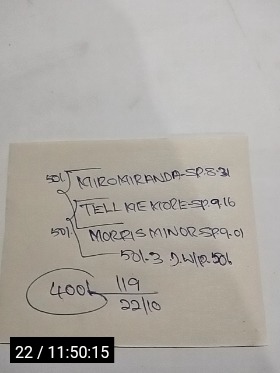 50/- MIROMIRANDA-SP.8.31
TELL ME MORE-SP.9.16
50/- MORRIS MINOR SP9.01
50/-3 J.W/P.50/-
400/- 119
22/10
22 / 11:50:15